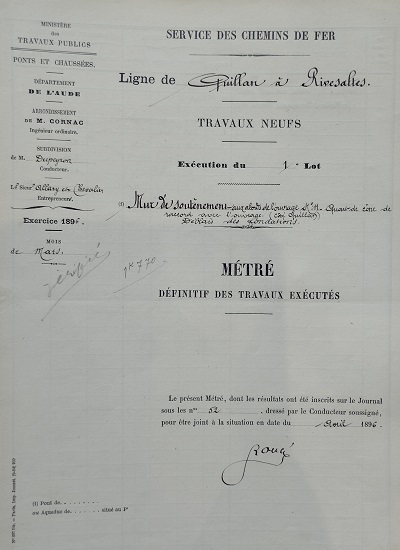 MINISTÈRE
des
TRAVAUX PUBLICS
PONTS ET CHAUSSÉES.
DÉPARTEMENT
DE L'AUDE
ARRONDISSEMENT
DE M. CORNAC
Ingénieur ordinaire.
SUBDIVISION
de M. Dupeyron
Conducteur.
Entrepreneur.
Exercice 1896.
MOIS
de Mars.
SERVICE DES CHEMINS DE FER
Ligne de Quillan à Rivesaltes.
TRAVAUX NEUFS
Exécution du 1er Lot
(1) Mur de soutènement aux abords de l'ouvrage Quart de cône de
raccord avec l'ouvrage (côté Quillan)
Déblais des fondations.
vérifié
770
MÉTRÉ
DÉFINITIF DES TRAVAUX EXÉCUTÉS
Le présent Métré, dont les résultats ont été inscrits sur le Journal
sous les nos 52, dressé par le Conducteur soussigné,
pour être joint à la situation en date du Avril 1896.
Rougé
(1) Pont de . . . . . . . .
ou Aqueduc de . . . . . . . situé au P